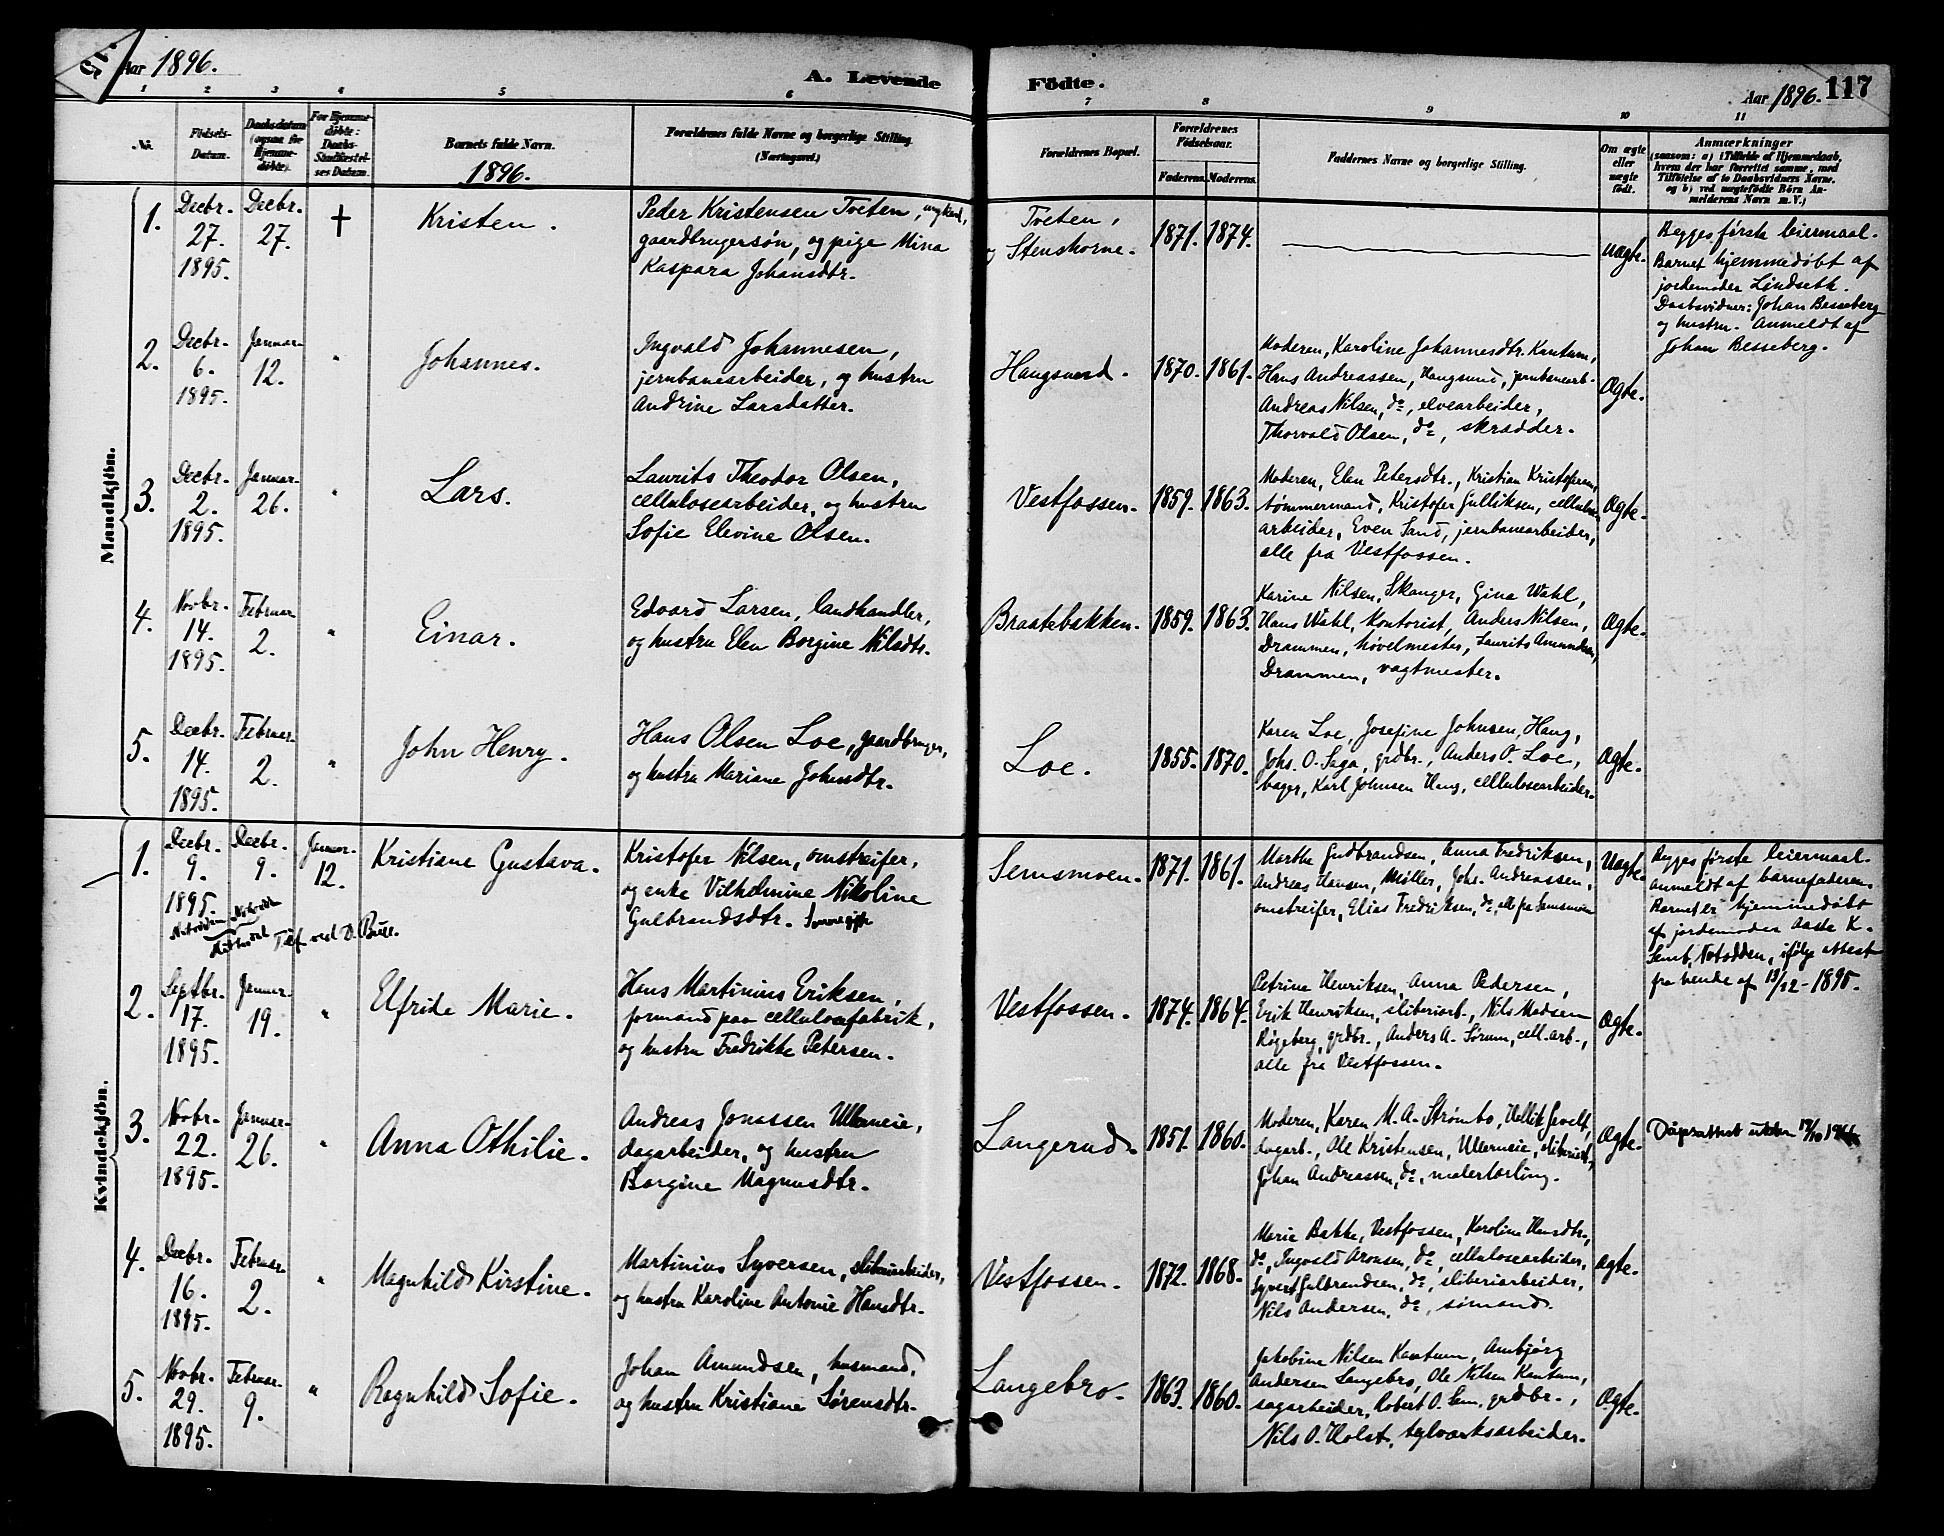 Aar 1896.
A. Levende
Födte.
Aar 1896. 117
1 2 3 4 5 6 7 8 9 10 11
No.
Födsels-
Datum.
Daabsdatum
(ogsaa for
Hjemme-
döbte).
For Hjemme-
döbte:
Daabs-
Stadfæstel-
ses Datum.
Barnets fulde Navn.
1896.
Forældrenes fulde Navne og borgerlige Stilling.
(Næringsvei.)
Forældrenes Bopæl.
Forældrenes
Födselsaar.
Faderens. Moderens.
Faddernes Navne og borgerlige Stilling.
Om ægte
eller
uægte
födt.
Anmærkninger
(saasom: a) i Tilfælde af Hjemmedaab,
hvem der har forrettet samme, med
Tilföielse af to Daabsvidners Navne,
og b) ved uægtefödte Börn An-
melderens Navn m. V.)
Mandkjön.
1.
Decbr.
27.
1895.
Decbr.
27.
†
Kristen.
Peder Kristensen Tveten, ungkarl,
gaardbrugersøn, og pige Mina
Kaspara Johansdtr.
Tveten,
og Stenshorne.
1871. 1874.
Uægte.
Begges første leiermaal.
Barnet hjemmedøbt af
jordemoder Lindseth.
Daabsvidner: Johan Besseberg
og hustru. Anmeldt af
Johan Besseberg.
2.
Decbr.
6.
1895.
Januar
12.
"
Johannes.
Ingvald Johannesen,
jernbanearbeider, og hustru
Andrine Larsdatter.
Haugsund.
1870. 1861.
Moderen, Karoline Johannesdtr. Kantum,
Hans Andreassen, Haugsund, jernbanearb.
Andreas Nilsen, do, elvearbeider,
Thorvald Olsen, do, skrædder.
Ægte.
3.
Decbr.
2.
1895.
Januar
26.
"
Lars.
Laurits Theodor Olsen,
cellulosearbeider, og hustru
Sofie Elevine Olsen.
Vestfossen.
1859. 1863.
Moderen, Elen Petersdtr., Kristian Kristofersen,
tømmermand, Kristofer Gulliksen, cellulose
arbeider, Even Sand, jernbanearbeider,
alle fra Vestfossen.
Ægte.
4.
Novbr.
14.
1895.
Februar
2.
"
Einar.
Edvard Larsen, landhandler,
og hustru Elen Borgine Nilsdtr.
Braatebakken.
1859. 1863.
Karine Nilsen, Skanger, Gina Wahl,
Hans Wahl, kontorist, Anders Nilsen,
Drammen, høvelmester, Laurits Amundsen,
Drammen, vagtmester.
Ægte.
5.
Decbr.
14.
1895.
Februar
2.
"
John Henry.
Hans Olsen Loe, gaardbruger,
og hustru Mariane Johnsdtr.
Loe.
1855. 1870.
Karen Loe, Josefine Johnsen, Haug,
Johs. O. Saga, grdbr., Anders O. Loe,
bager, Karl Johnsen Haug, cellulosearbeider.
Ægte.
Kvindekjön.
1.
Decbr.
9.
1895.
Decbr.
9.
Januar
12.
Kristiane Gustava.
Kristofer Nilsen, omstreifer,
og enke Vilhelmine Nikoline
Gulbrandsdtr.
Semsmoen.
1871. 1861.
Marthe Gudbrandsen, Anna Fredriksen,
Andreas Hansen, Møller, Johs. Andreassen,
omstreifer, Elias Fredriksen, do, alle fra Semsmoen
Uægte.
Begges første leiermaal.
Anmeldt af barnefaderen.
Barnet er hjemmedøbt
af jordemoder Aaste K.
Semb, Notodden, ifølge attest
fra hende af 13/12-1895.
2.
Septbr.
17.
1895.
Januar
19.
"
Elfride Marie.
Hans Martinius Eriksen,
formand paa cellulosefabrik,
og hustru Fredrikke Petersen.
Vestfossen.
1874. 1864.
Petrine Henriksen, Anna Pedersen,
Erik Henriksen, sliberiarb., Nils Madsen
Røgeberg, grdbr., Anders A. Sørum, cell.arb.,
alle fra Vestfossen.
Ægte.
3.
Novbr.
22.
1895.
Januar
26.
"
Anna Othilie.
Andreas Jonassen Ulleneie,
dagarbeider, og hustru
Borgine Magnusdtr.
Langerud.
1851. 1860.
Moderen, Karen M. A. Strømbo, Hellik Gevelt,
dagarb., Ole Kristensen, Ullerneie, sliberiarb.,
Johan Andreassen, do, malerlærling.
Ægte.
4.
Decbr.
16.
1895.
Februar
2.
"
Magnhild Kirstine.
Martinius Syversen, sliberiarbeider,
og hustru Karoline Antonie Hansdtr.
Vestfossen.
1872. 1868.
Marie Bakke, Vestfossen, Karoline Hansdtr.,
do, Ingvald Aronsen, do, cellulosearbeider,
Syvert Gulbrandsen, do, sliberiarbeider,
Nils Andersen, do, sømand.
Ægte.
5.
Novbr.
29.
1895.
Februar
9.
"
Ragnhild Sofie.
Johan Amundsen, husmand,
og hustru Kristiane Sørensdtr.
Langebro.
1863. 1860.
Jakobine Nilsen Kantum, Ambjørg
Andersen Langebro, Ole Nilsen Kantum,
sagarbeider, Robert O. Sem, grdbr.,
Nils O. Holst, teglværksarbeider.
Ægte.